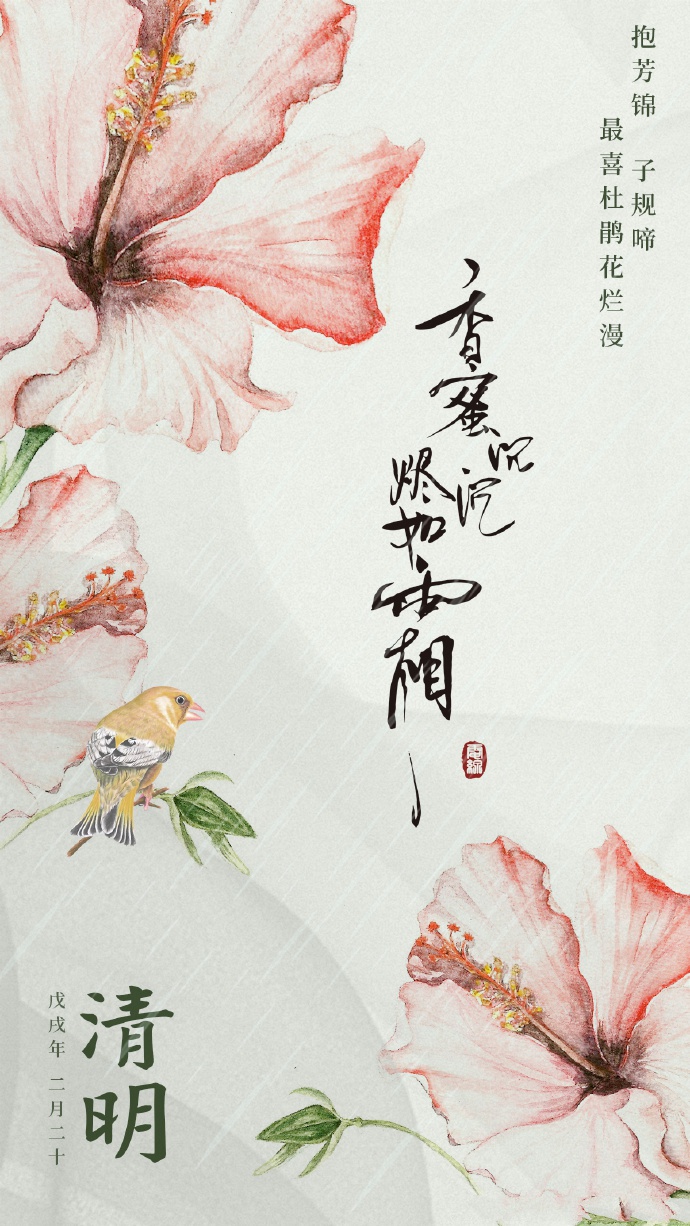 抱芳锦 子规啼
最喜杜鹃花烂漫
香蜜沉沉
烬如霜
清明
戊戌年 二月二十